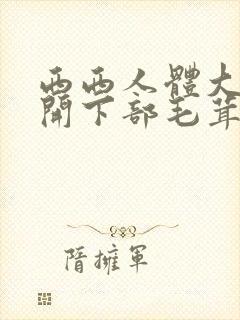 西西人體大
開下部毛茸
隋擁軍